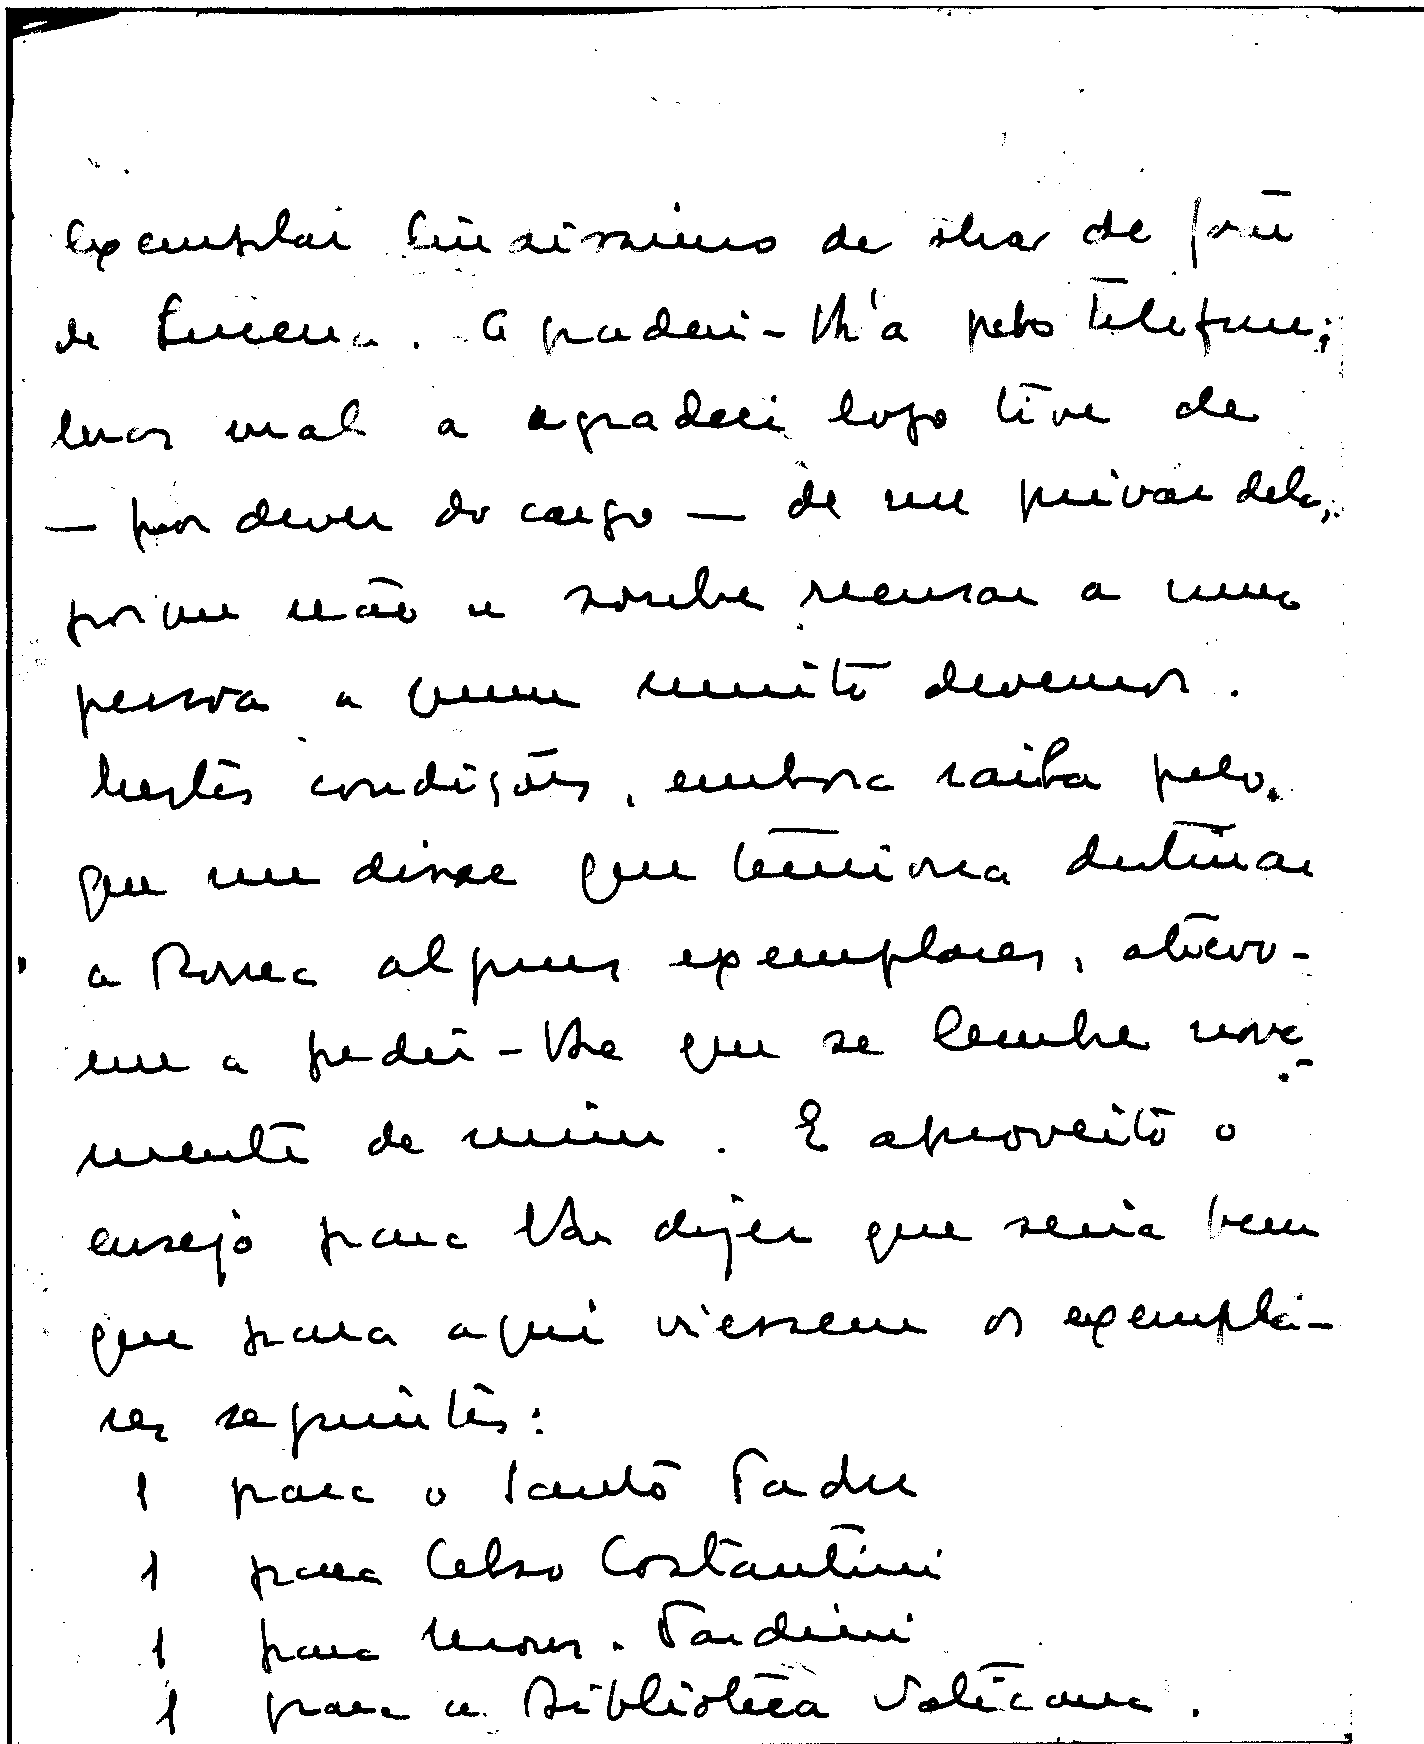 exemplar lindissimo da obra de João
de Lucena. Agradeci-lh'a pelo telefone;
mas mal a agradeci logo tive de
— por dever do cargo — de me privar dela,
porque não a soube recusar a uma
pessoa a quem muito devemos.
Nestas condições, embora saiba pelo
que me disse que tenciona destinar
a Roma alguns exemplares, atrevo-
me a pedir-lhe que se lembre nova-
mente de mim. E aproveito o
ensejo para lhe dizer que seria bem
que para aqui viessem os exempla-
res seguintes:
1 para o Santo Padre
1 para Celso Costantini
1 para Mons. Tardini
1 para a Biblioteca Vaticana.